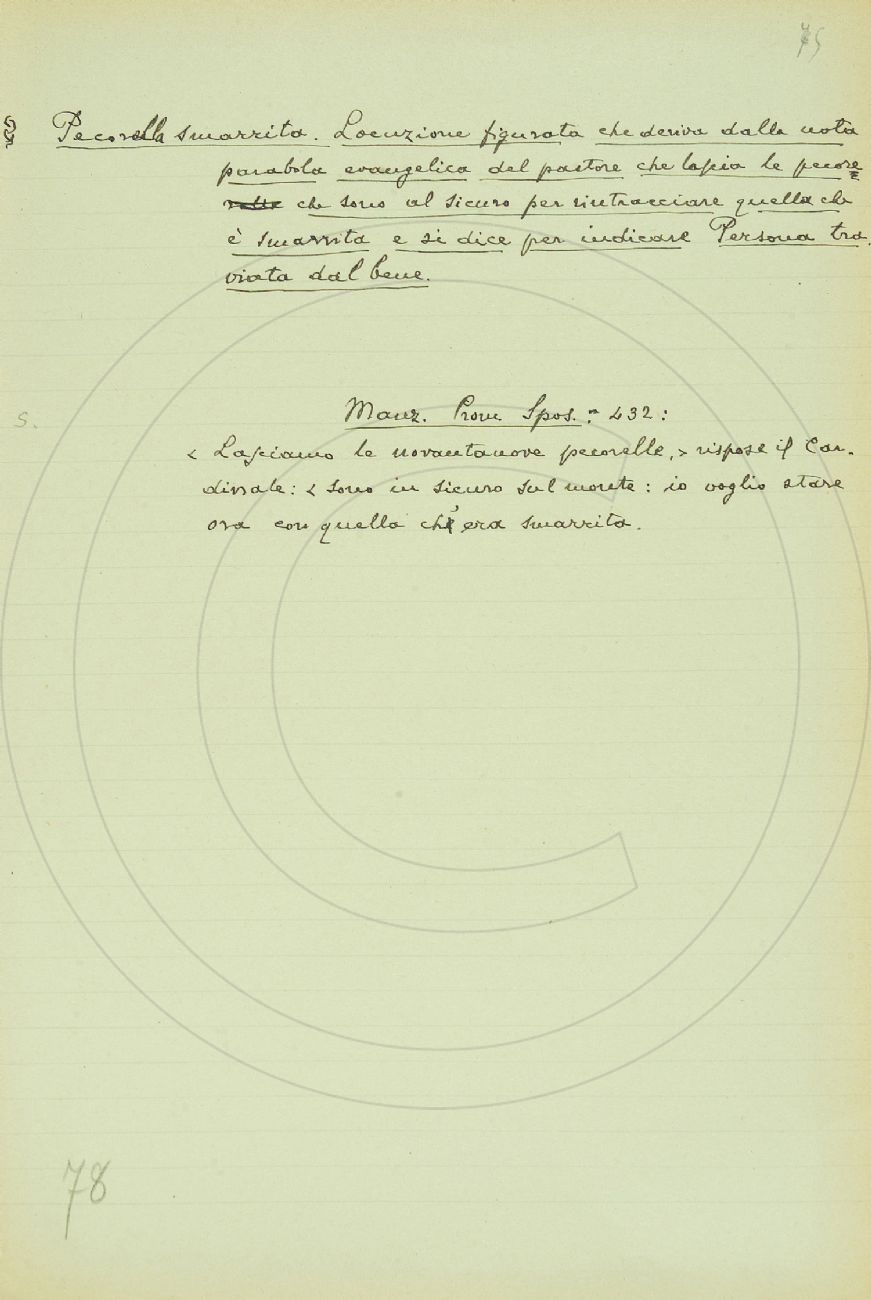 75
§ Pecorella smarrita. Locuzione figurata che deriva dalla nota
parabola evangelica del pastore che lascia le pecore
che sono al sicuro per rintracciare quella che
è smarrita e si dice per indicare Persona tra-
viata dal bene.
Manz. Prom. Spos. 432:
S.
« Lasciamo le novantanove pecorelle, » rispose il Car-
dinale: « sono in sicuro sul monte: io voglio stare
ora con quella ch'era smarrita.
78